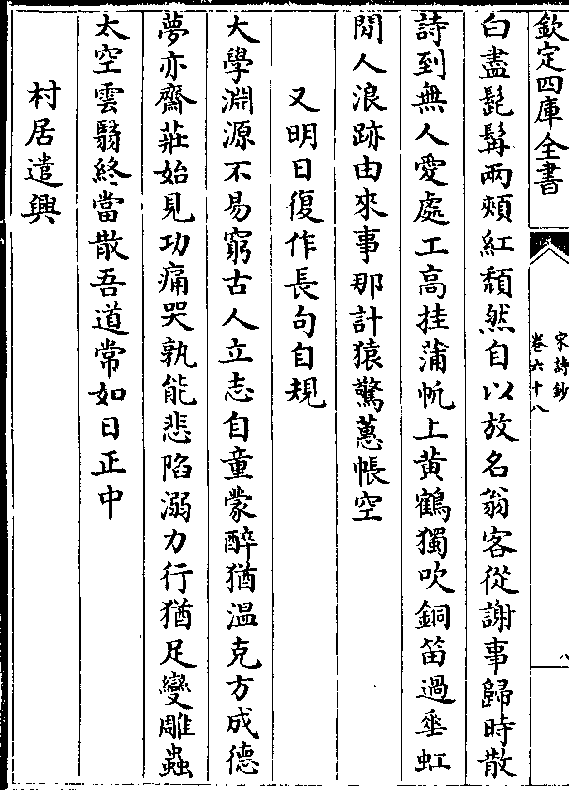 欽定四庫全書
宋詩鈔
卷六十八
八
白盡髭髯兩頰紅頹然自以放名翁客從謝事歸時散
詩到無人愛處工高挂蒲帆上黄鶴獨吹銅笛過垂虹
閒人浪跡由來事那計猿驚蕙帳空
又明日復作長句自規
大學淵源不易窮古人立志自童蒙醉猶温克方成德
夢亦齋莊始見功痛哭孰能悲陷溺力行猶足變雕蟲
太空雲翳終當散吾道常如日正中
村居遣興